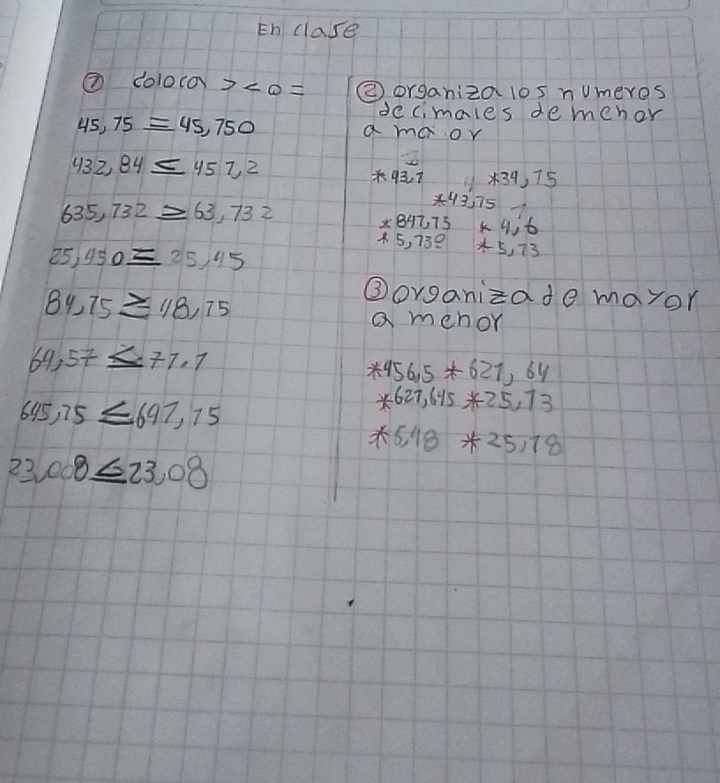 En clase
① coloca > < o =
45,75 = 45,750
432,84 ≤ 457,2
635,732 ≥ 63,732
25,450 = 25,45
84,75 ≥ 48,75
64,57 ≤ 77.1
645,75 ≤ 647,75
23,008 ≤ 23,08
② organiza los numeros
decimales de menor
a ma or
*43,7 *34,75
*43,75
*847,75 *4,6
*5,732 *5,73
③ organiza de mayor
a menor
*456,5 *621,64
*621,645 *25,13
*6,48 *25,18